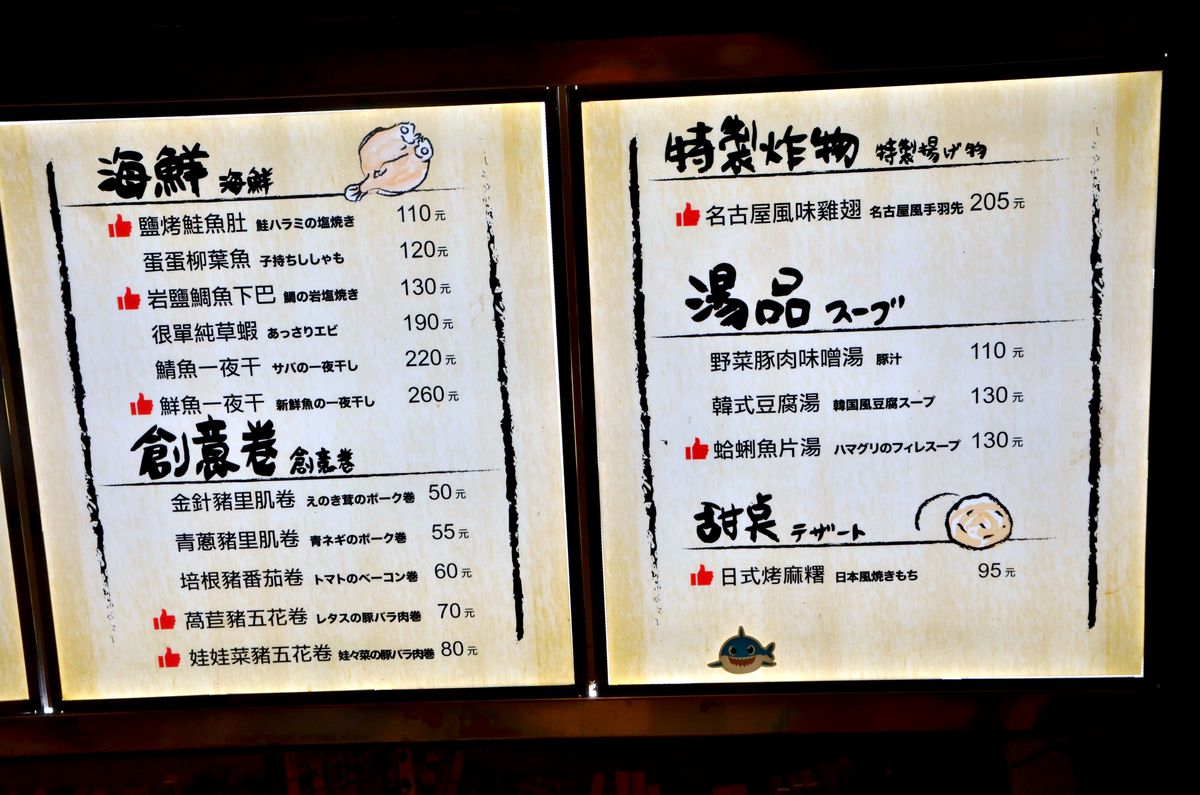 海鮮 海鮮
鹽烤鮭魚肚 鮭ハラミの塩焼き 110元
蛋蛋柳葉魚 子持ちししゃも 120元
岩鹽鯛魚下巴 鯛の岩塩焼き 130元
很單純草蝦 あっさりエビ 190元
鯖魚一夜干 サバの一夜干し 220元
鮮魚一夜干 新鮮魚の一夜干し 260元
創意卷 創意巻
金針豬里肌卷 えのき茸のポーク巻 50元
青蔥豬里肌卷 青ネギのポーク巻 55元
培根豬番茄卷 トマトのベーコン巻 60元
萵苣豬五花卷 レタスの豚バラ肉巻 70元
娃娃菜豬五花卷 娃々菜の豚バラ肉巻 80元
特製炸物 特製揚げ物
名古屋風味雞翅 名古屋風手羽先 205元
湯品 スープ
野菜豚肉味噌湯 豚汁 110元
韓式豆腐湯 韓国風豆腐スープ 130元
蛤蜊魚片湯 ハマグリのフィレスープ 130元
甜桌 テザート
日式烤麻糬 日本風焼きもち 95元